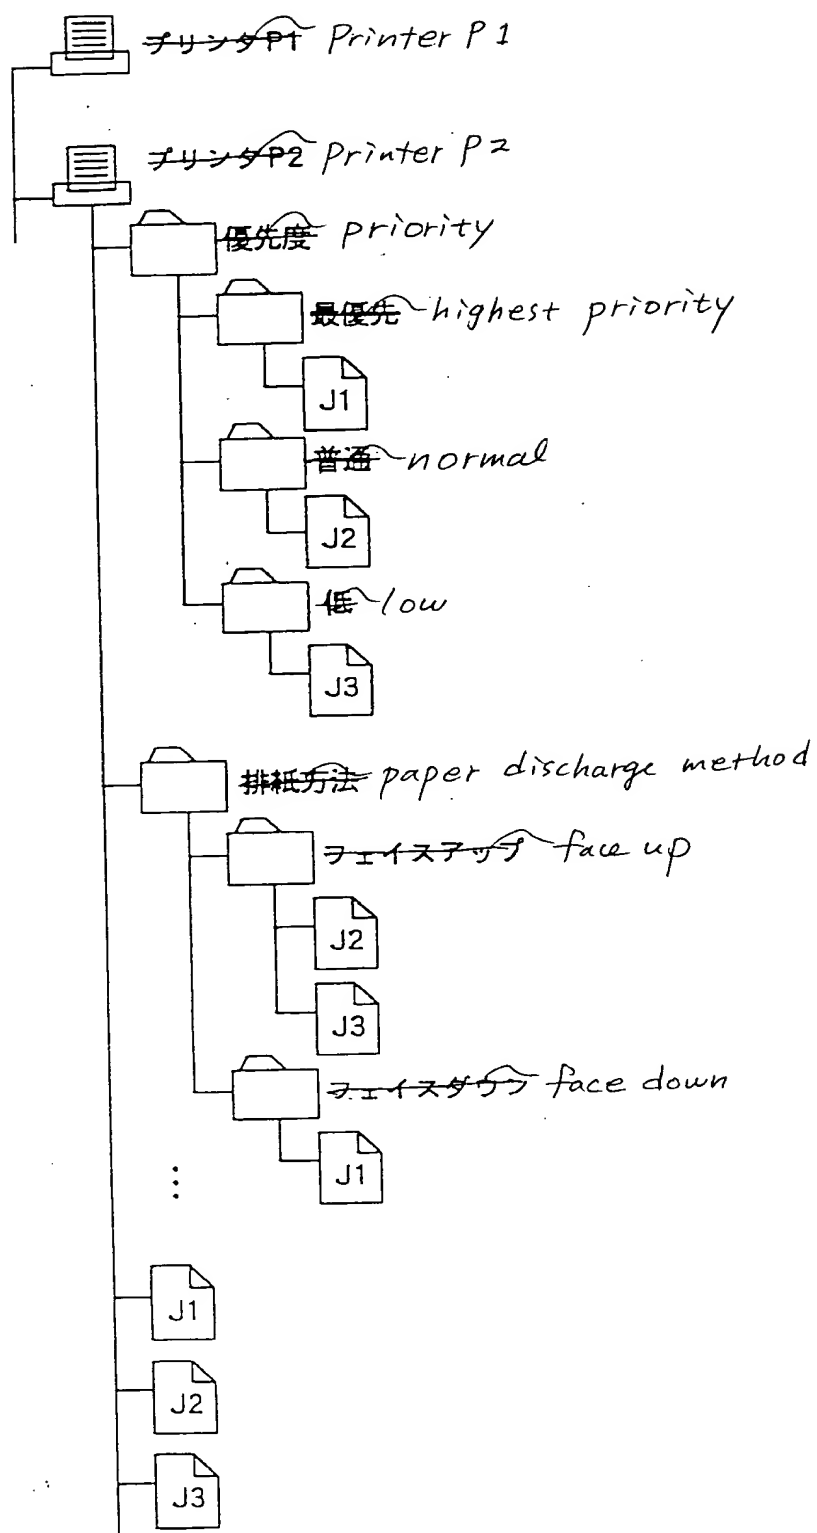 プリンタP1 Printer P1
プリンタP2 Printer P2
優先度 priority
最優先 highest priority
J1
普通 normal
J2
低 low
J3
排紙方法 paper discharge method
フェイスアップ face up
J2
J3
フェイスダウン face down
J1
J1
J2
J3